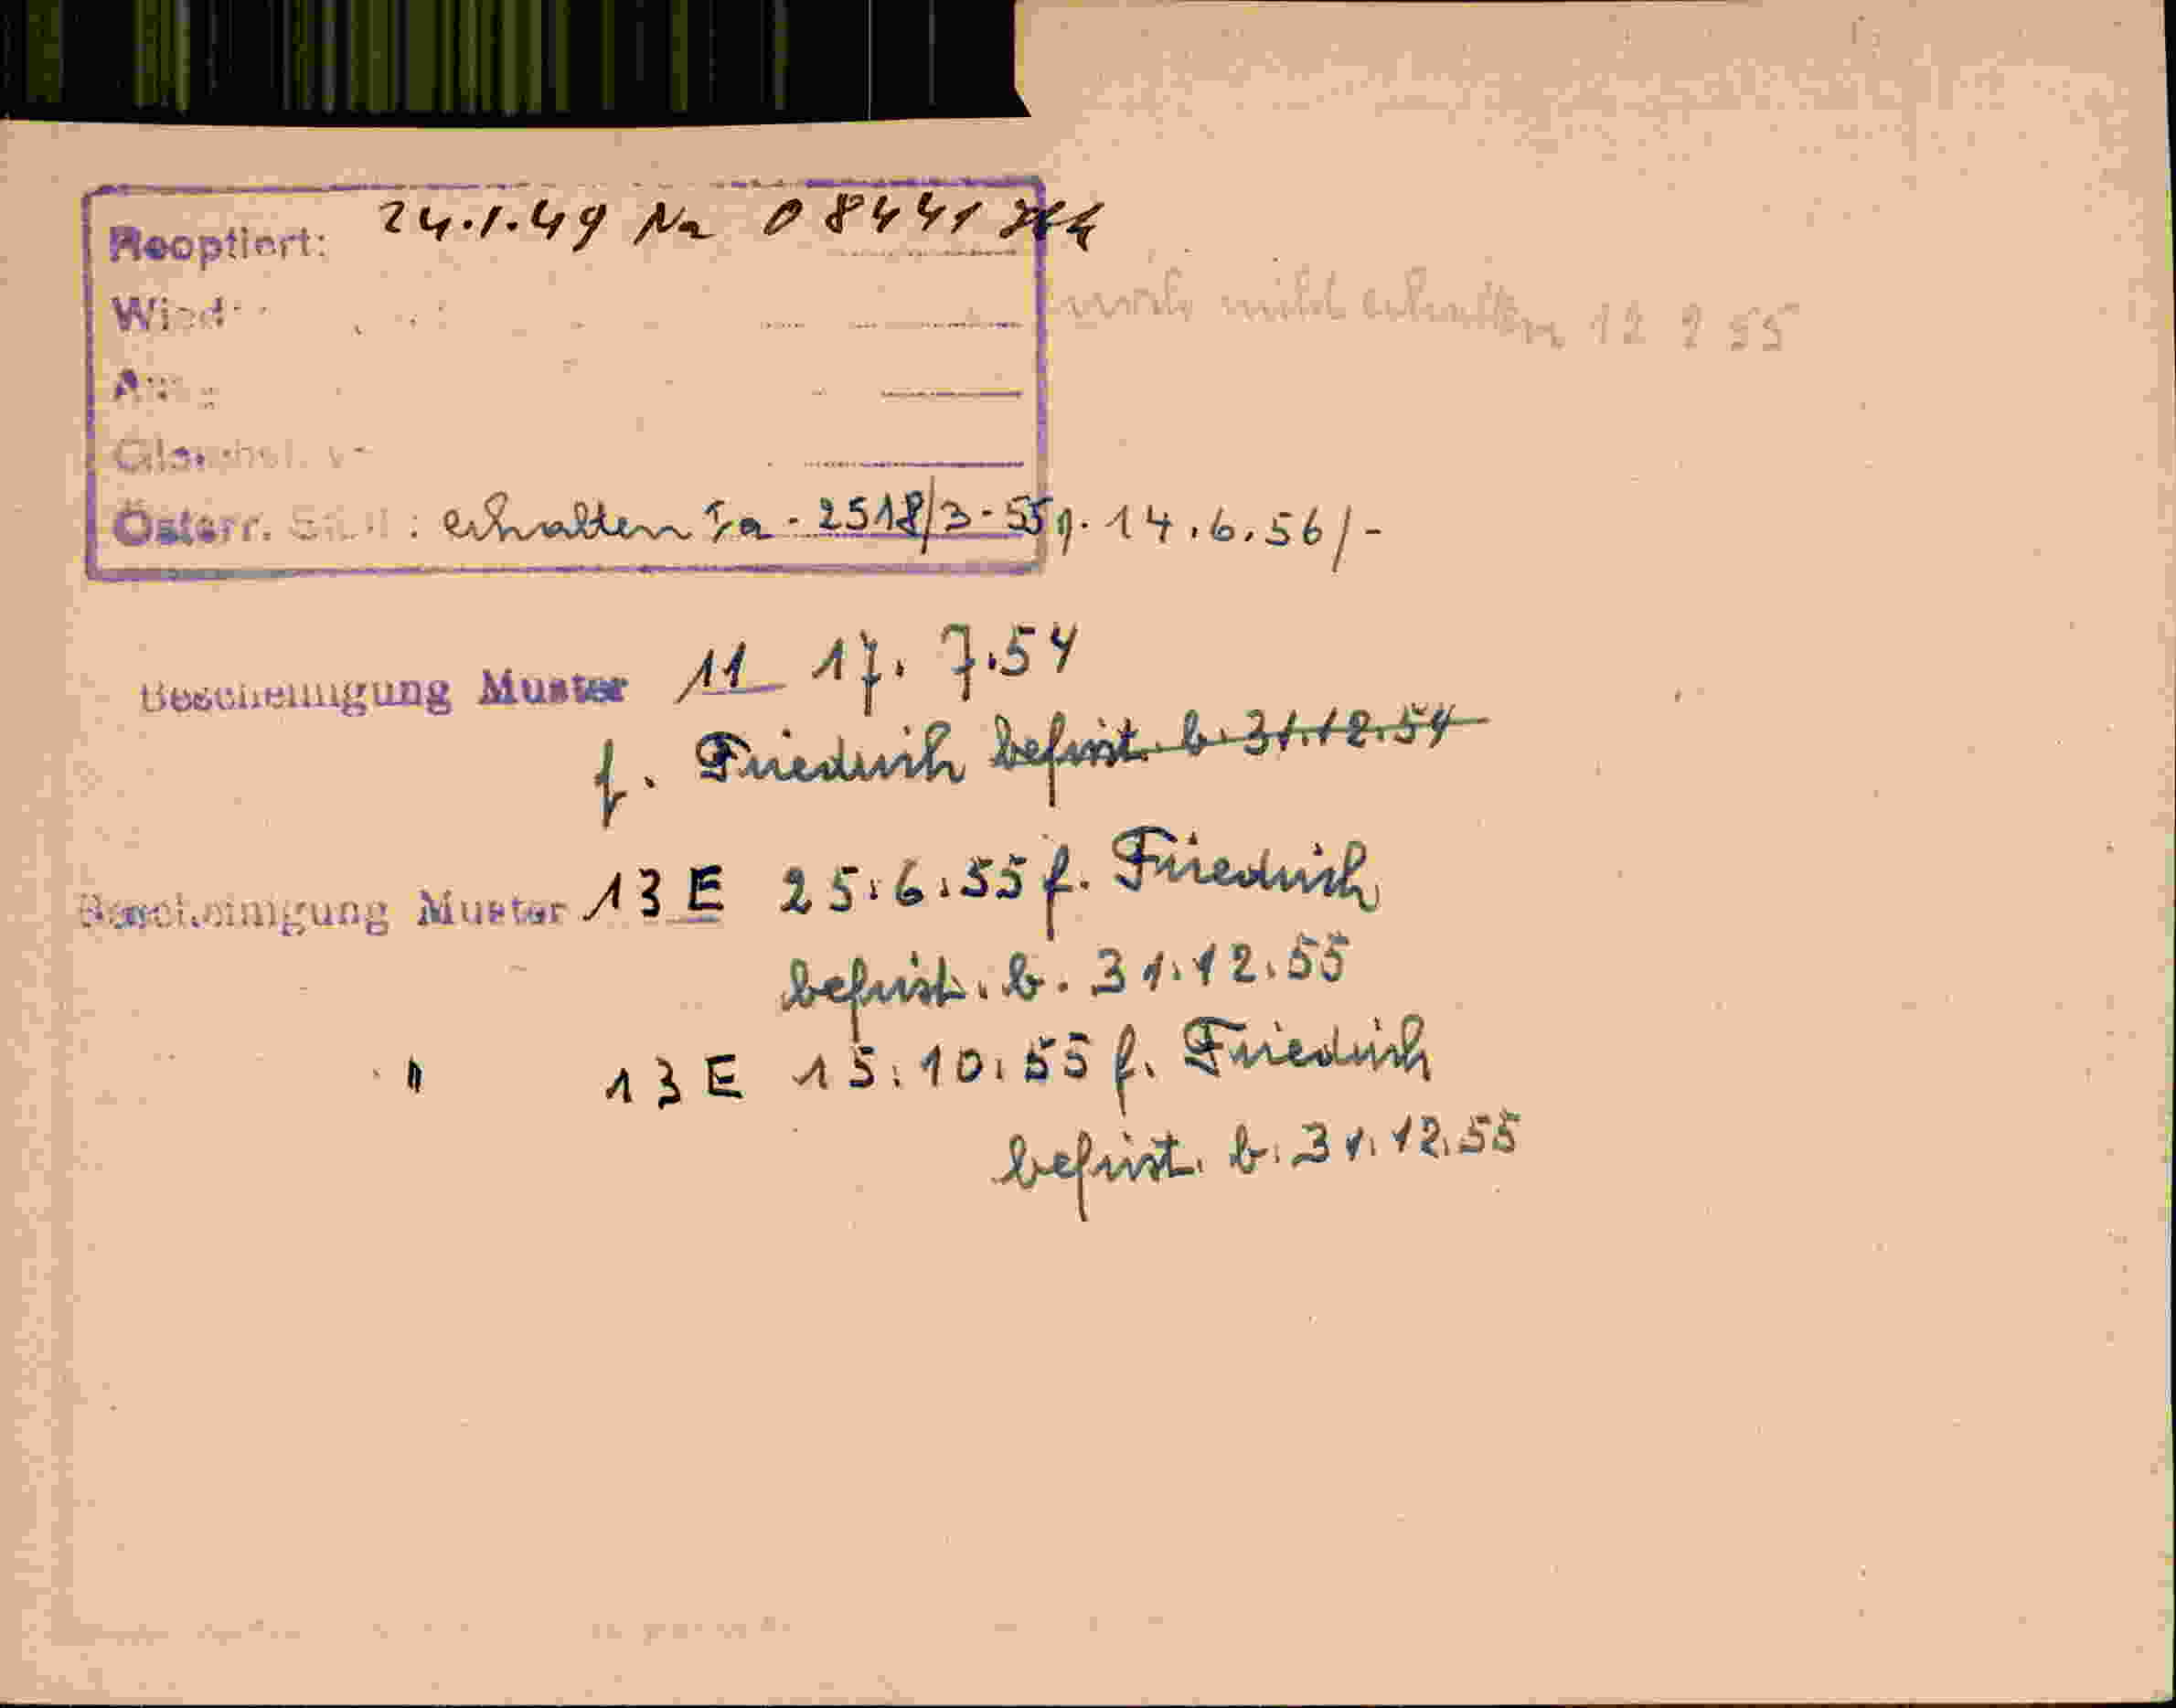 Reoptiert: 24.1.49 Na 08441
noch nicht erhalten 12 2 55
Österr. : erhalten Ia - 2518/3-55 14.6.56/-
Bescheinigung Muster 11 17. 7.54
f. Friedrich befrist. b. 31.12.54
Bescheinigung Muster 13 E 25.6.55 f. Friedrich
befrist. b. 31.12.55
" 13 E 15.10.55 f. Friedrich
befrist. b. 31.12.55